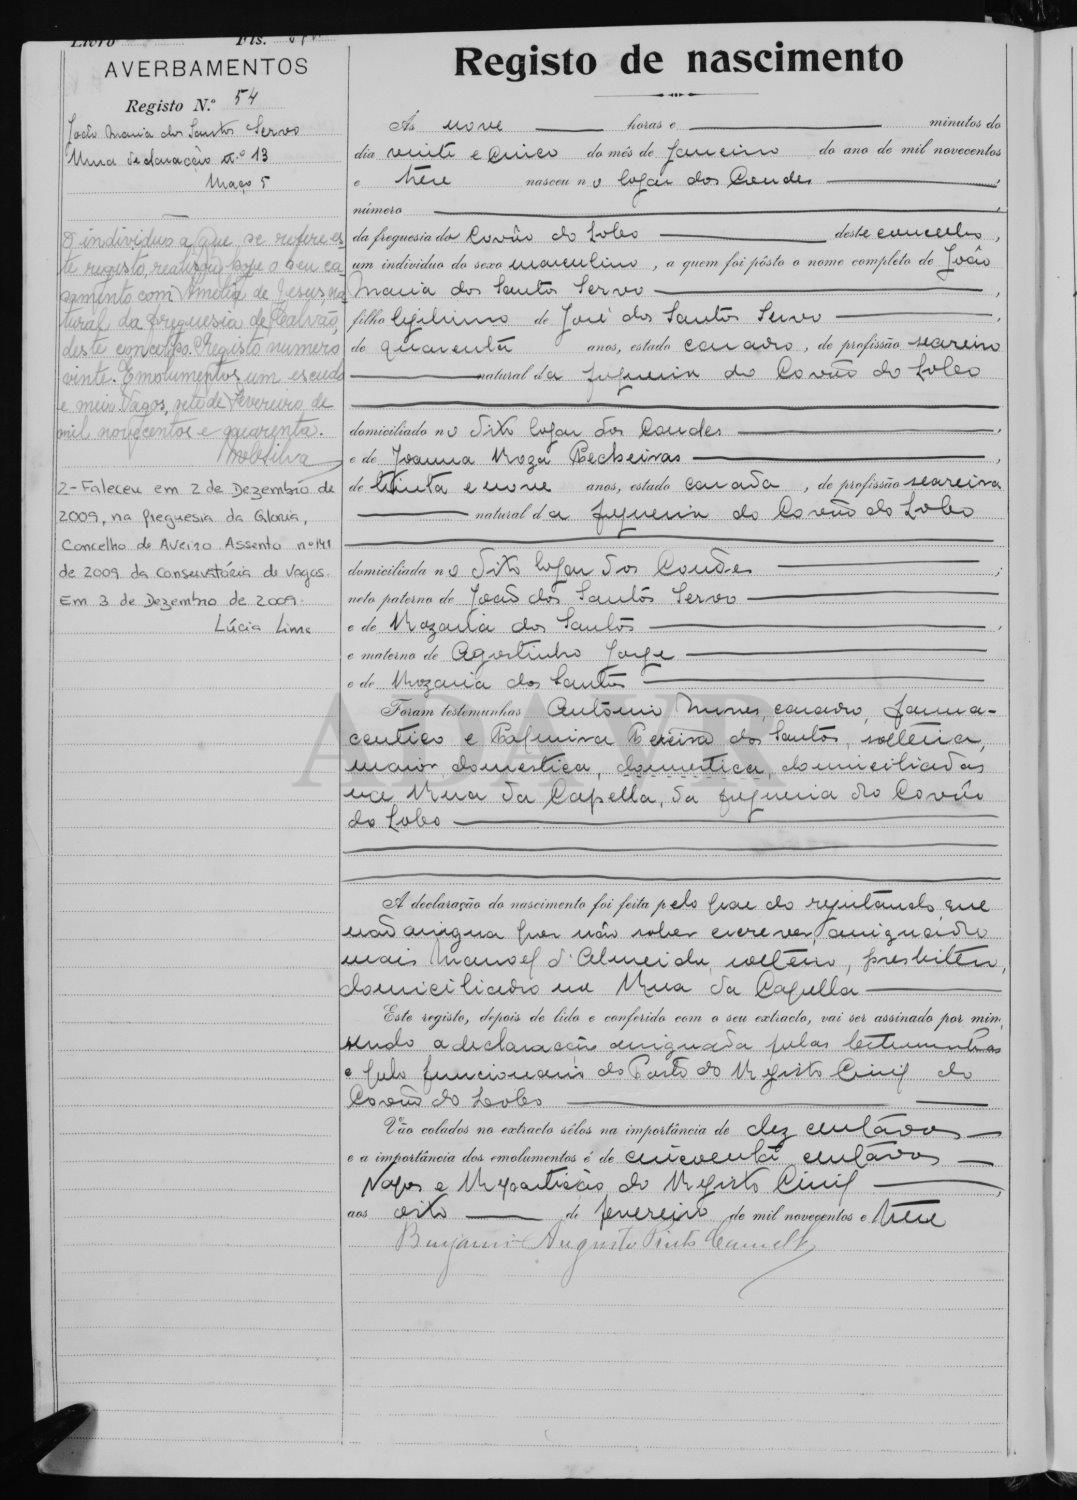 Livro Fls.
AVERBAMENTOS
Registo N.º 54
João Maria dos Santos Servo
Uma declaração n.º 13
Maço 5
O individuo a que se refere es-
te registo, realizou hoje o seu ca-
samento com Amelia de Jesus, na-
tural da freguesia de Calvão,
deste concelho. Registo numero
vinte. Emolumentos um escudo
e meio. Vagos, sete de Fevereiro de
mil novecentos e quarenta.
2-Faleceu em 2 de Dezembro de
2009, na freguesia da Gloria,
Concelho de Aveiro Assento nº 141
de 2009 da Conservatória de Vagos.
Em 3 de Dezembro de 2009.
Lúcia Lima
Registo de nascimento
Ás nove horas e minutos do
dia vinte e cinco do mês de Janeiro do ano de mil novecentos
e treze nasceu no logar dos Condes,
número,
da freguesia do Covão do Lobo deste concelho,
um individuo do sexo masculino, a quem foi pôsto o nome completo de João
Maria dos Santos Servo,
filho legitimo de José dos Santos Servo,
de quarenta anos, estado casado, de profissão seareiro
natural da freguesia do Covão do Lobo
domiciliado no dito logar dos Condes,
e de Joanna Roza,
de trinta e nove anos, estado casada, de profissão seareira
natural da freguesia do Covão do Lobo
domiciliada no dito logar dos Condes;
neto paterno de João dos Santos Servo
e de Rozaria dos Santos,
e materno de Agostinho Jorge
e de Rozaria dos Santos
Foram testemunhas António Nunes, casado, farma-
ceutico e Palmira Pereira dos Santos, solteira,
maior domestica, domestica, domiciliadas
na Rua da Capella, da freguesia do Covão
do Lobo
A declaração do nascimento foi feita pelo pae do registando, que
não assigna por não saber escrever, assignando
mais Manoel d'Almeida, solteiro, presbitero,
domiciliado na Rua da Capella
Este registo, depois de lido e conferido com o seu extracto, vai ser assinado por mim,
sendo a declaração assignada pelas testemunhas
e pelo funcionario do Posto do Registo Civil do
Covão do Lobo
Vão colados no extracto sêlos na importância de dez centavos
e a importância dos emolumentos é de cincoenta centavos
Vagos e Repartição do Registo Civil,
aos oito de fevereiro de mil novecentos e treze
Benjamin Augusto
ADAVR